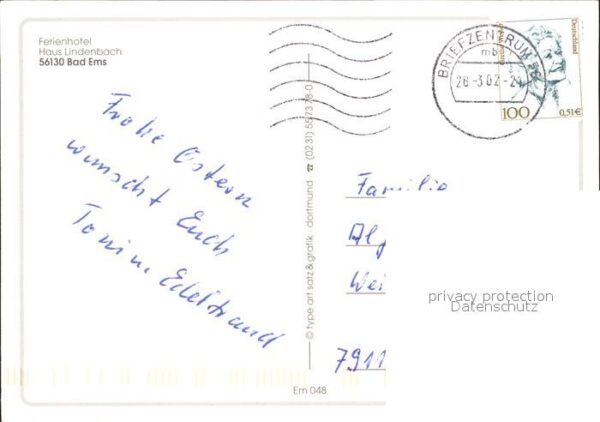 Ferienhotel
Haus Lindenbach
56130 Bad Ems
Frohe Ostern
wünscht Euch
Toni u. Edeltraud
© type art satz & grafik · dortmund ☎ (0231) 557378-0
Em 048
BRIEFZENTRUM 56
mb
26.-3.02.-2
Deutschland
100
0,51€
Familie
Alp
Wei
7911
privacy protection
Datenschutz